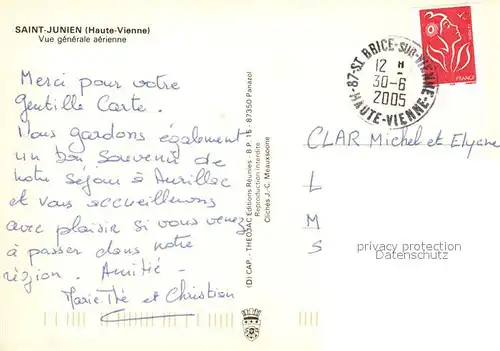 SAINT-JUNIEN (Haute-Vienne)
Vue générale aérienne
Merci pour votre
Gentille Carte.
Nous gardons également
un bon Souvenir de
notre séjour à Aurillac
et vous accueillerons
avec plaisir si vous venez
à passer dans notre
région. Amitié -
Marie Thé et Christian
(D) CAP - THEOJAC Editions Réunies - B.P. 15 - 87350 Panazol
Reproduction interdite
Clichés J.-C. Meauxsoone
87-ST BRICE-SUR-VIENNE
12 H
30-6
2005
HAUTE-VIENNE
FRANCE
CLAR Michel et Elyane
L
M
S
privacy protection
Datenschutz